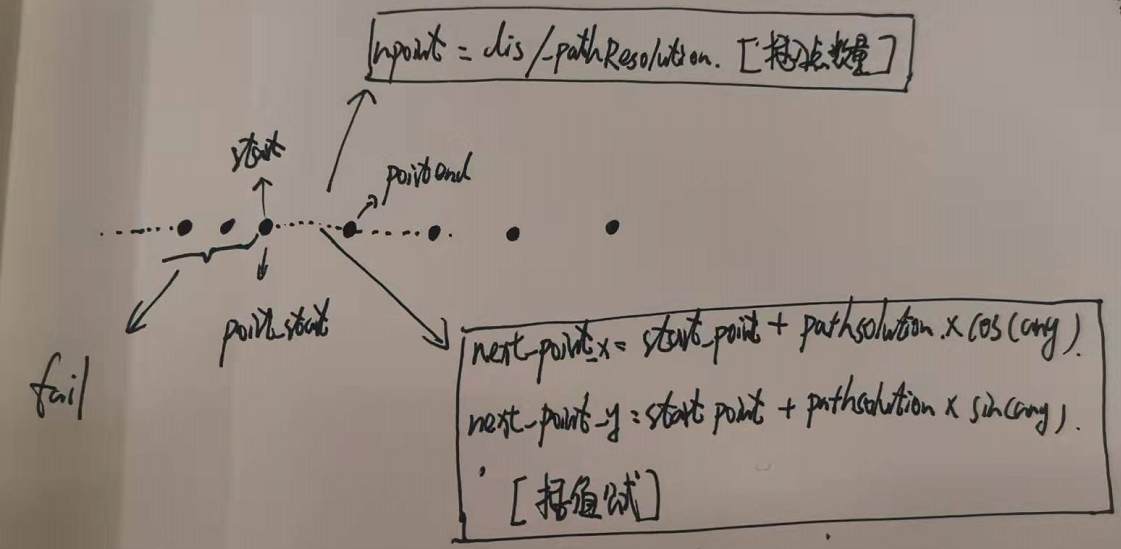 npoint = dis/-pathResolution. [插入点数量]
start
point end
point_start
fail
next-point_x = start_point + pathsolution. x cos(ang).
next-point-y = start point + pathsolution x sin(ang).
[插值公式]